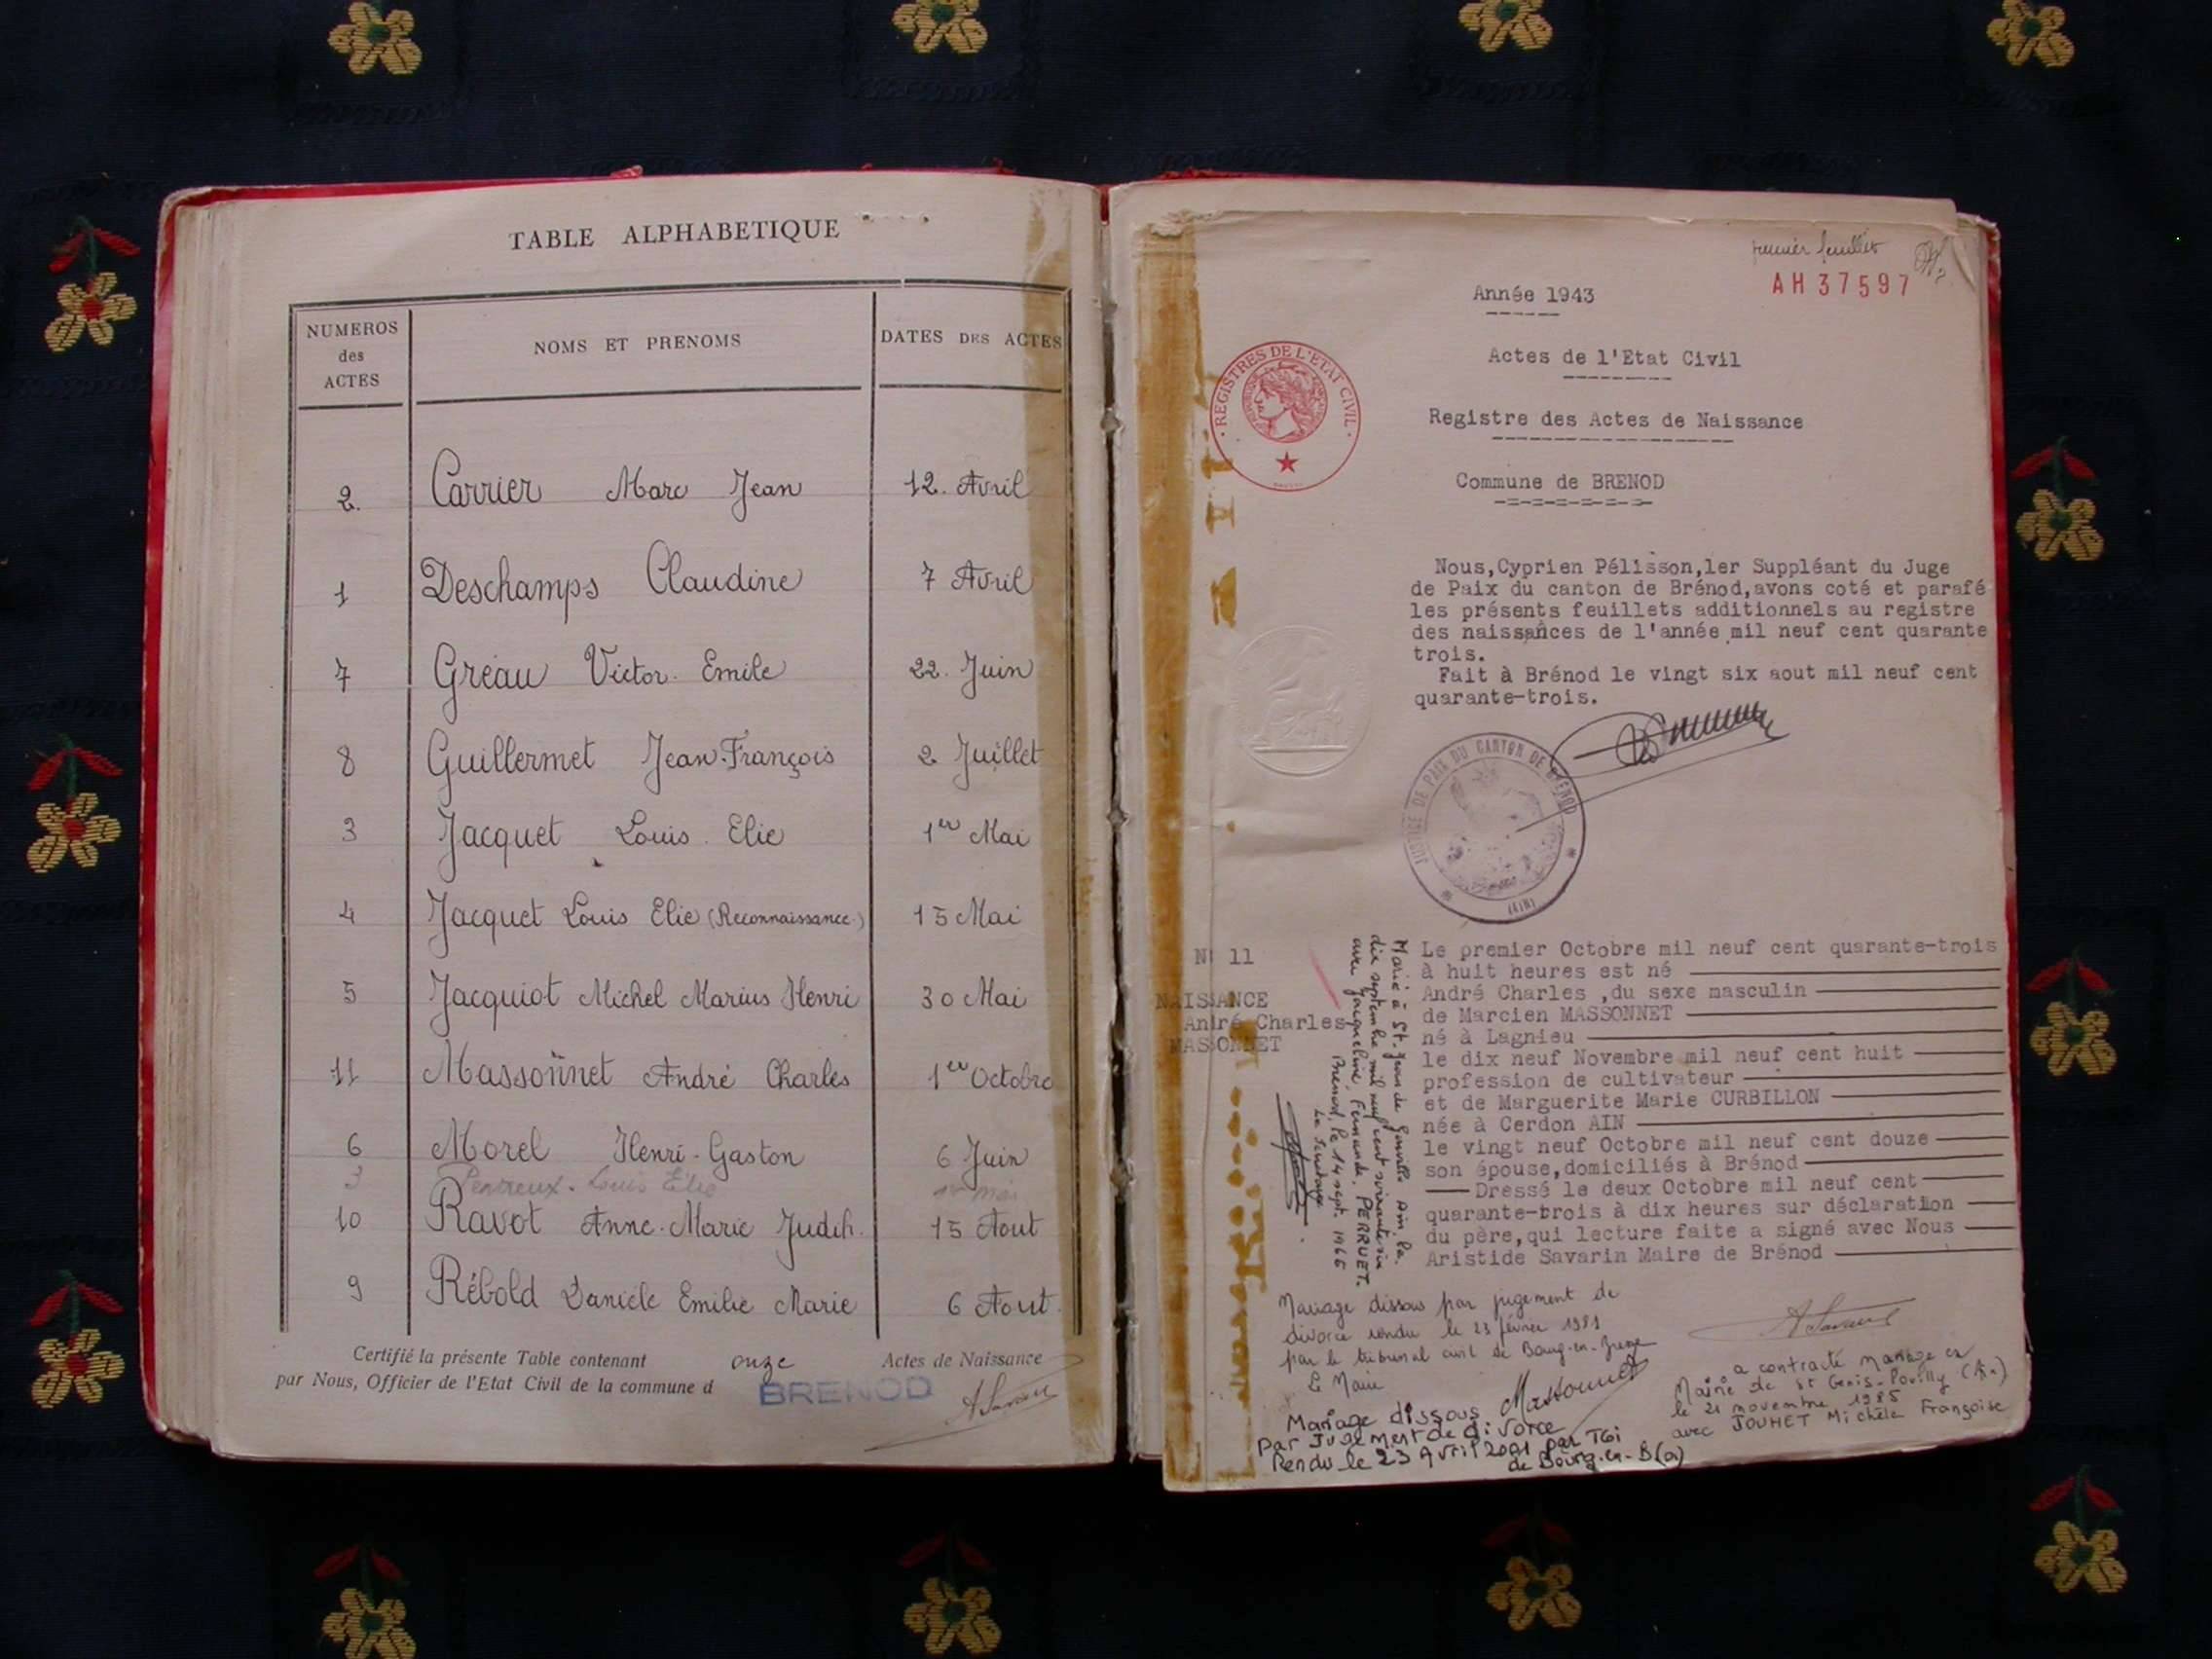 TABLE ALPHABETIQUE
NUMEROS des ACTES NOMS ET PRENOMS DATES DES ACTES
2. Carrier Marc Jean 12. Avril
1 Deschamps Claudine 7 Avril
7 Gréau Victor. Emile 22. Juin
8 Guillermet Jean-François 2 Juillet
3 Jacquet Louis. Elie 1er Mai
4 Jacquet Louis Elie (Reconnaissance) 15 Mai
5 Jacquiot Michel Marius Henri 30 Mai
11 Massonnet André Charles 1er Octobre
6 Morel Henri-Gaston 6 Juin
3 Louis Elie 1er Mai
10 Ravot Anne-Marie Judih. 15 Aout
9 Rébold Danièle Emilie Marie 6 Aout.
Certifié la présente Table contenant onze Actes de Naissance
par Nous, Officier de l'Etat Civil de la commune d BRENOD
premier feuillet
AH 37597
Année 1943
Actes de l'Etat Civil
REGISTRES DE L'ETAT CIVIL
Registre des Actes de Naissance
Commune de BRENOD
Nous,Cyprien Pélisson,1er Suppléant du Juge
de Paix du canton de Brénod,avons coté et parafé
les présents feuillets additionnels au registre
des naissances de l'année mil neuf cent quarante
trois.
Fait à Brénod le vingt six aout mil neuf cent
quarante-trois.
JUSTICE DE PAIX DU CANTON DE BRENOD
(AIN)
N° 11
NAISSANCE
André Charles
MASSONNET
Le premier Octobre mil neuf cent quarante-trois
à huit heures est né
André Charles ,du sexe masculin
de Marcien MASSONNET
né à Lagnieu
le dix neuf Novembre mil neuf cent huit
profession de cultivateur
et de Marguerite Marie CURBILLON
née à Cerdon AIN
le vingt neuf Octobre mil neuf cent douze
son épouse,domiciliés à Brénod
Dressé le deux Octobre mil neuf cent
quarante-trois à dix heures sur déclaration
du père,qui lecture faite a signé avec Nous
Aristide Savarin Maire de Brénod
Marié à St. Jean de Ain le
dix septembre mil neuf cent soixante six
avec Jacqueline Fernande PERRUET.
Brénod, le 14 sept. 1966
Mariage dissous par jugement de
divorce rendu le 23 février 1981
par le tribunal civil de Bourg-en-Bresse
Le Maire
Massonnet
a contracté mariage en
Mairie de St Genis-Pouilly (Ain)
le 21 novembre 1985
avec JOUHET Michèle Françoise
Mariage dissous
Par Jugement de divorce
Rendu le 23 Avril 2001 par TGi
de Bourg-en-B(a)